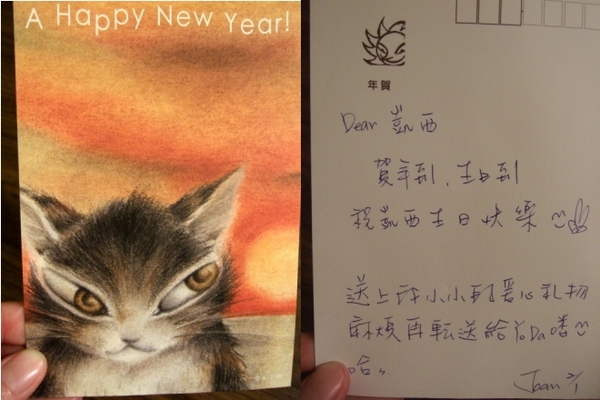 A Happy New Year!
年賀
Dear 凱西
賀年到, 生日到
祝凱西生日快樂
送上小小的愛心礼物
麻煩再転送給YoDa喽
哈..
Joan